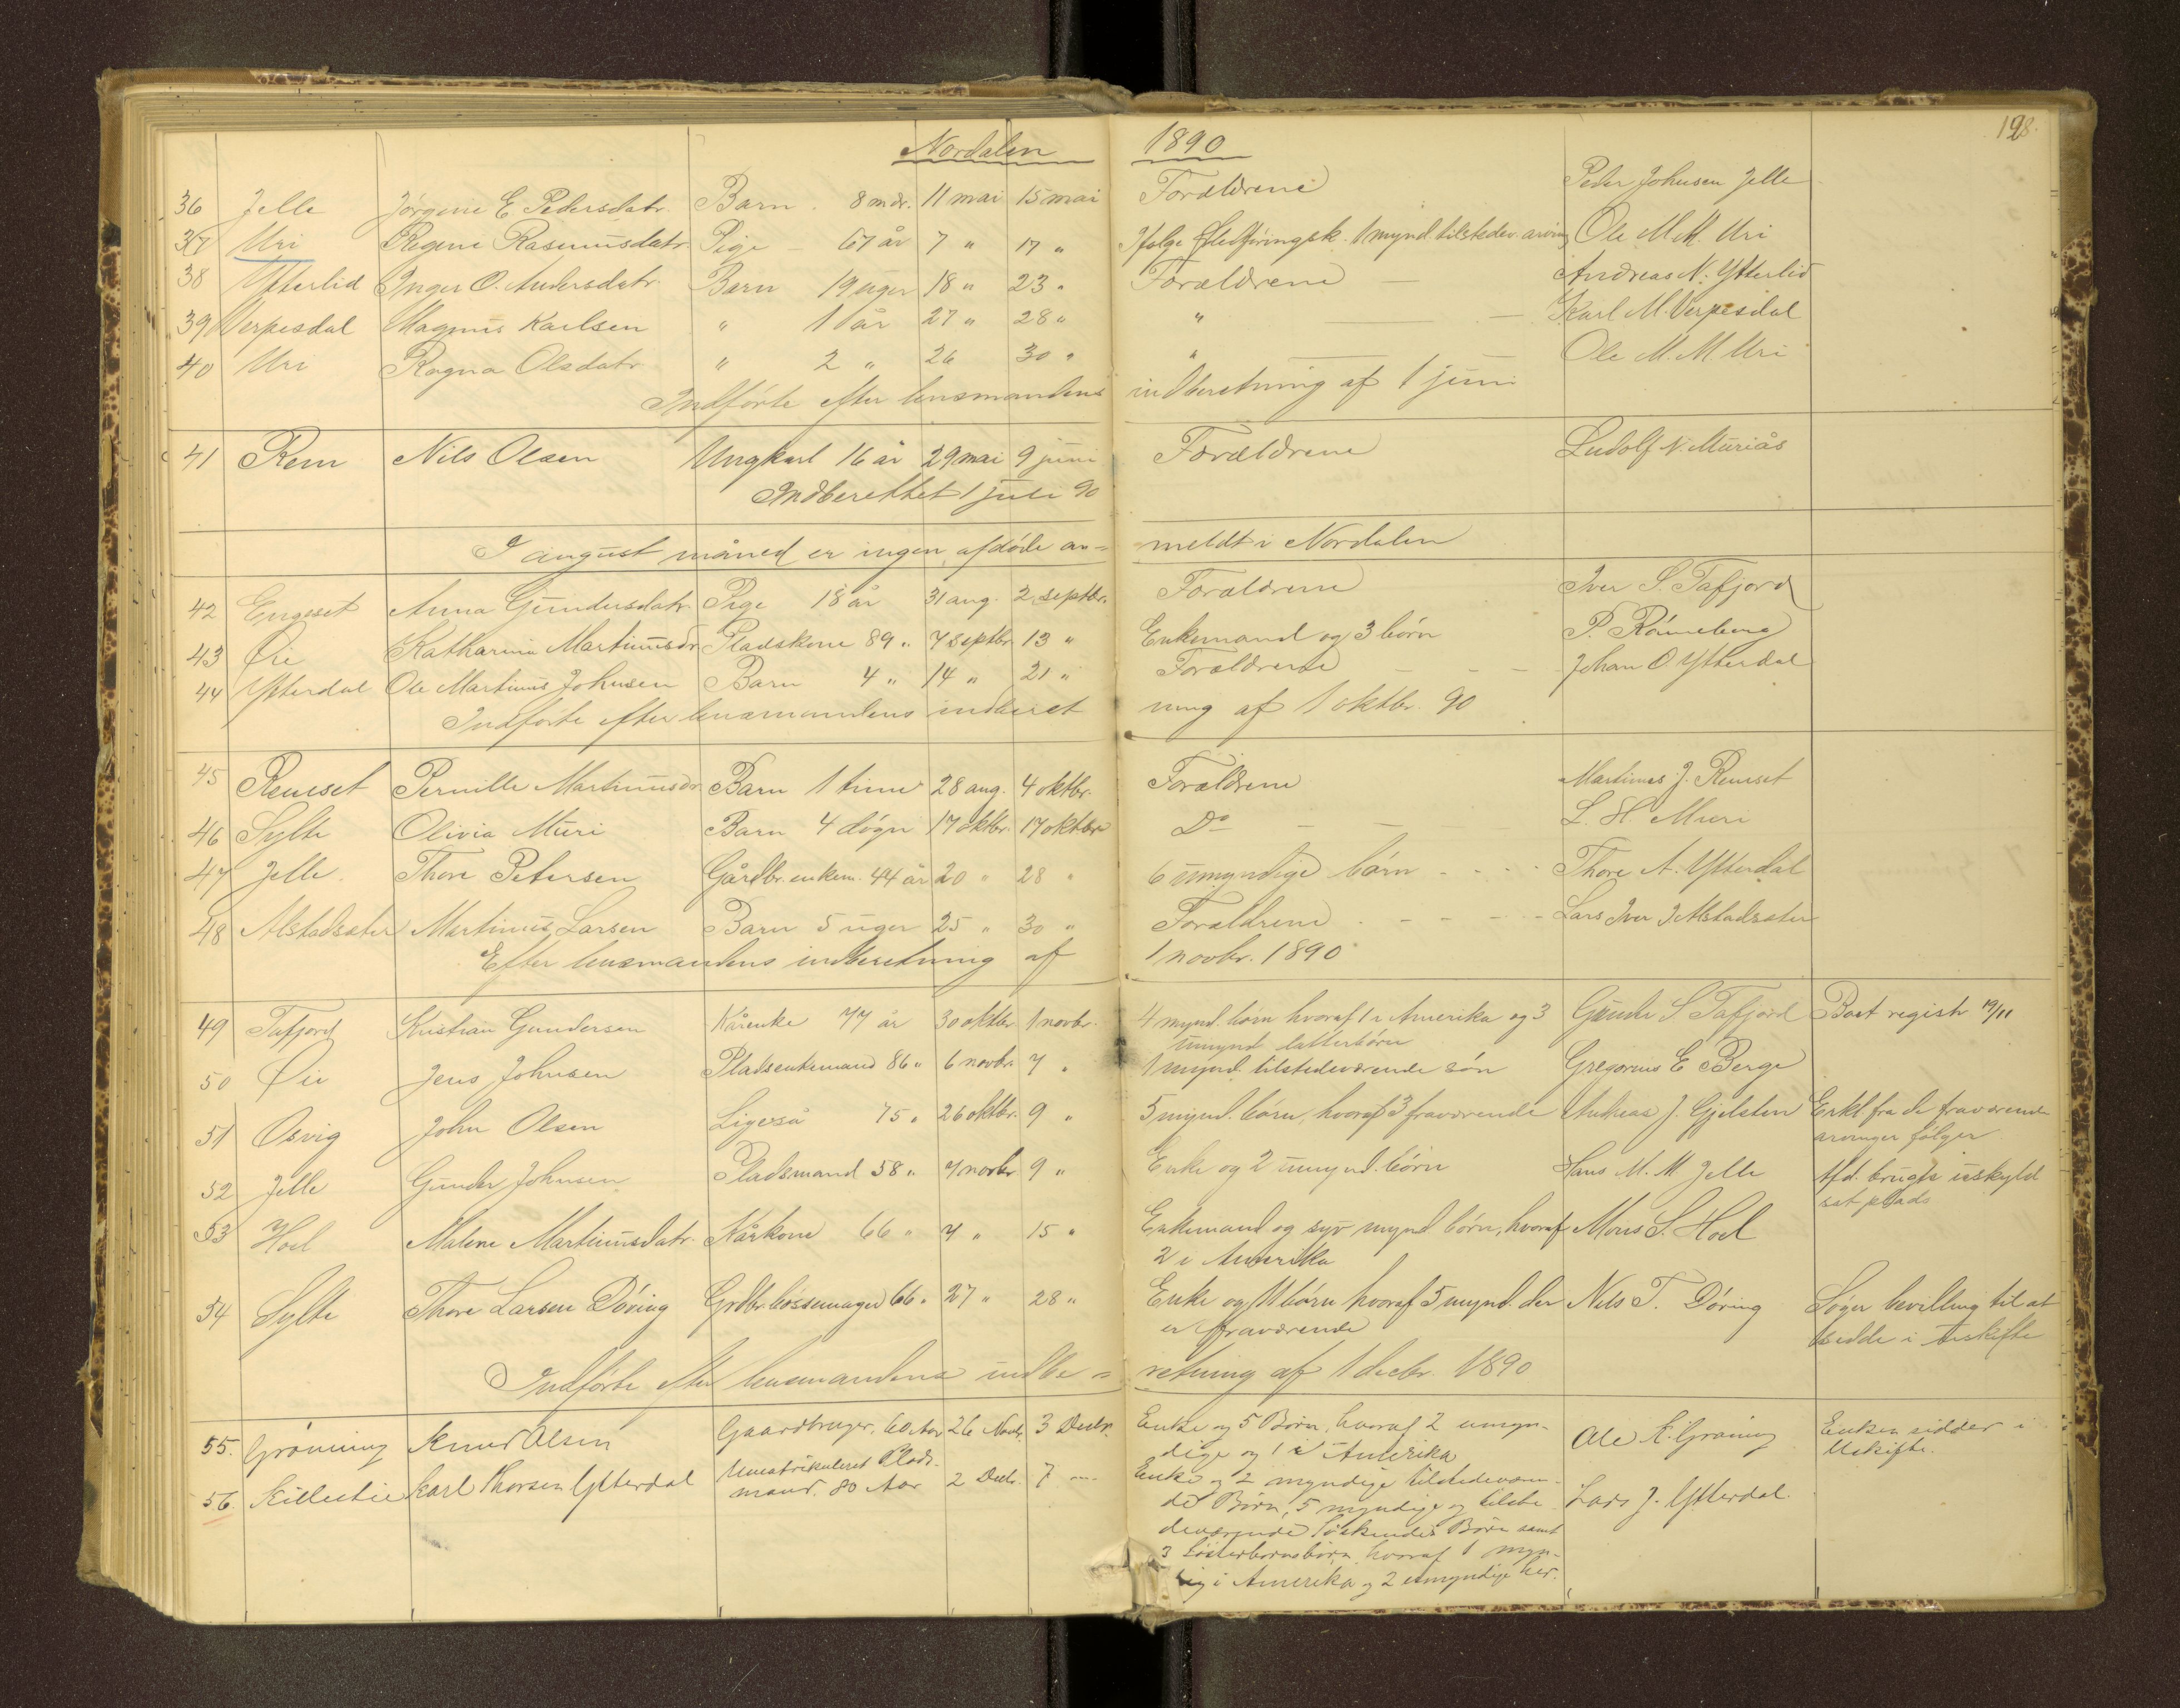 Nordalen 1890
198.
36 Jelle Jørgine E Pedersdatr. Barn 8 mdr. 11 mai 15 mai Forældrene Peder Johnsen Jelle
37 Uri Regine Rasmusdatr. Pige 67 år 7 " 17 " Ifølge 1 mynd. tilstedev. arving Ole M. M. Uri
38 Ytterlid Inger O. Andersdatr. Barn 19 uger 18 " 23 " Forældrene — Andreas N. Ytterlid
39 Verpesdal Magnus Karlsen " 1 år 27 " 28 " " — Karl M. Verpesdal
40 Uri Ragna Olsdatr " 2 " 26 30 " " Ole M. M. Uri
Indførte efter lensmandens indberetning af 1 juni
41 Rem Nils Olsen Ungkarl 16 år 29 mai 9 juni Forældrene Ludolf N. Muriås
Indberettet 1 juli 90
I august måned er ingen afdøde an= meldt i Nordalen
42 Engeset Anna Gundersdatr. Pige 18 år 31 aug. 2 septbr. Forældrene Iver S. Tafjord
43 Øie Katharina Martinusdr. Pladskone 89 " 7 septbr. 13 " Enkemand og 3 børn P. Rønneberg
44 Ytterdal Ole Martinus Johnsen Barn 4 " 14 " 21 " Forældrene — — — Johan O Ytterdal
Indførte efter lensmandens indberet ning af 1 oktbr. 90
45 Remset Pernille Martinusdr. Barn 1 time 28 aug. 4 oktbr. Forældrene Martinus J. Remset
46 Sylte Olivia Muri Barn 4 døgn 17 oktbr. 17 oktbr. Do — — — L. H. Muri
47 Jelle Thore Petersen Gårdbr. enkem. 44 år 20 " 28 " 6 umyndige børn - - - Thore A. Ytterdal
48 Alstadsæter Martinus Larsen Barn 5 uger 25 " 30 " Forældrene - - - - Lars Iver J Alstadsæter
Efter lensmandens indberetning af 1 novbr. 1890
49 Tafjord Kristian Gundersen Kårenke 77 år 30 oktbr. 1 novbr. 4 mynd. børn hvoraf 1 i Amerika og 3 Gunder S Tafjord Boet registr 19/11
umynd. datterbørn
50 Øie Jens Johnsen Pladsenkemand 86 " 6 novbr. 7 " 1 mynd. tilstedeværende søn Gregorius E Berge
51 Osvig John Olsen Ligeså 75 " 26 oktbr. 9 " 5 mynd. børn, hvoraf 3 fraværende Andreas J. Gjelsten Erkl fra de fraværende
arvinger følger
52 Jelle Gunder Johnsen Pladsmand 58 " 7 novbr. 9 " Enke og 2 umynd. børn Hans M. M. Jelle Afd. brugte uskyld
sat plads
53 Hoel Malene Martinusdatr. Kårkone 66 " 7 " 15 " Enkemand og syv mynd. børn, hvoraf Mons S. Hoel
2 i Amerika
54 Sylte Thore Larsen Døving Grdbr. bøssemager 66 " 27 " 28 " Enke og 11 børn hvoraf 5 mynd. der Nils T. Døving Søger bevilling til at
er fraværende sidde i uskifte
Indførte efter lensmandens indbe= retning af 1 decbr. 1890
55. Grønning Knud Olsen Gaardbruger, 60 Aar 26 Novb. 3 Decbr. Enke og 5 Børn, hvoraf 2 umyn-
dige og 1 i Amerika Ole K. Grøning Enken sidder i
Uskifte.
56. Killestie Karl Thorsen Ytterdal Umatrikuleret Plads-
mand. 80 Aar 2 Decb. 7 — Enke og 2 myndige tilstedeværen-
de Børn, 5 myndige og tilste Lars J. Ytterdal.
deværende Søskendes Børn samt
3 Søsterbørnsbørn hvoraf 1 myn-
dig i Amerika og 2 umyndige her.